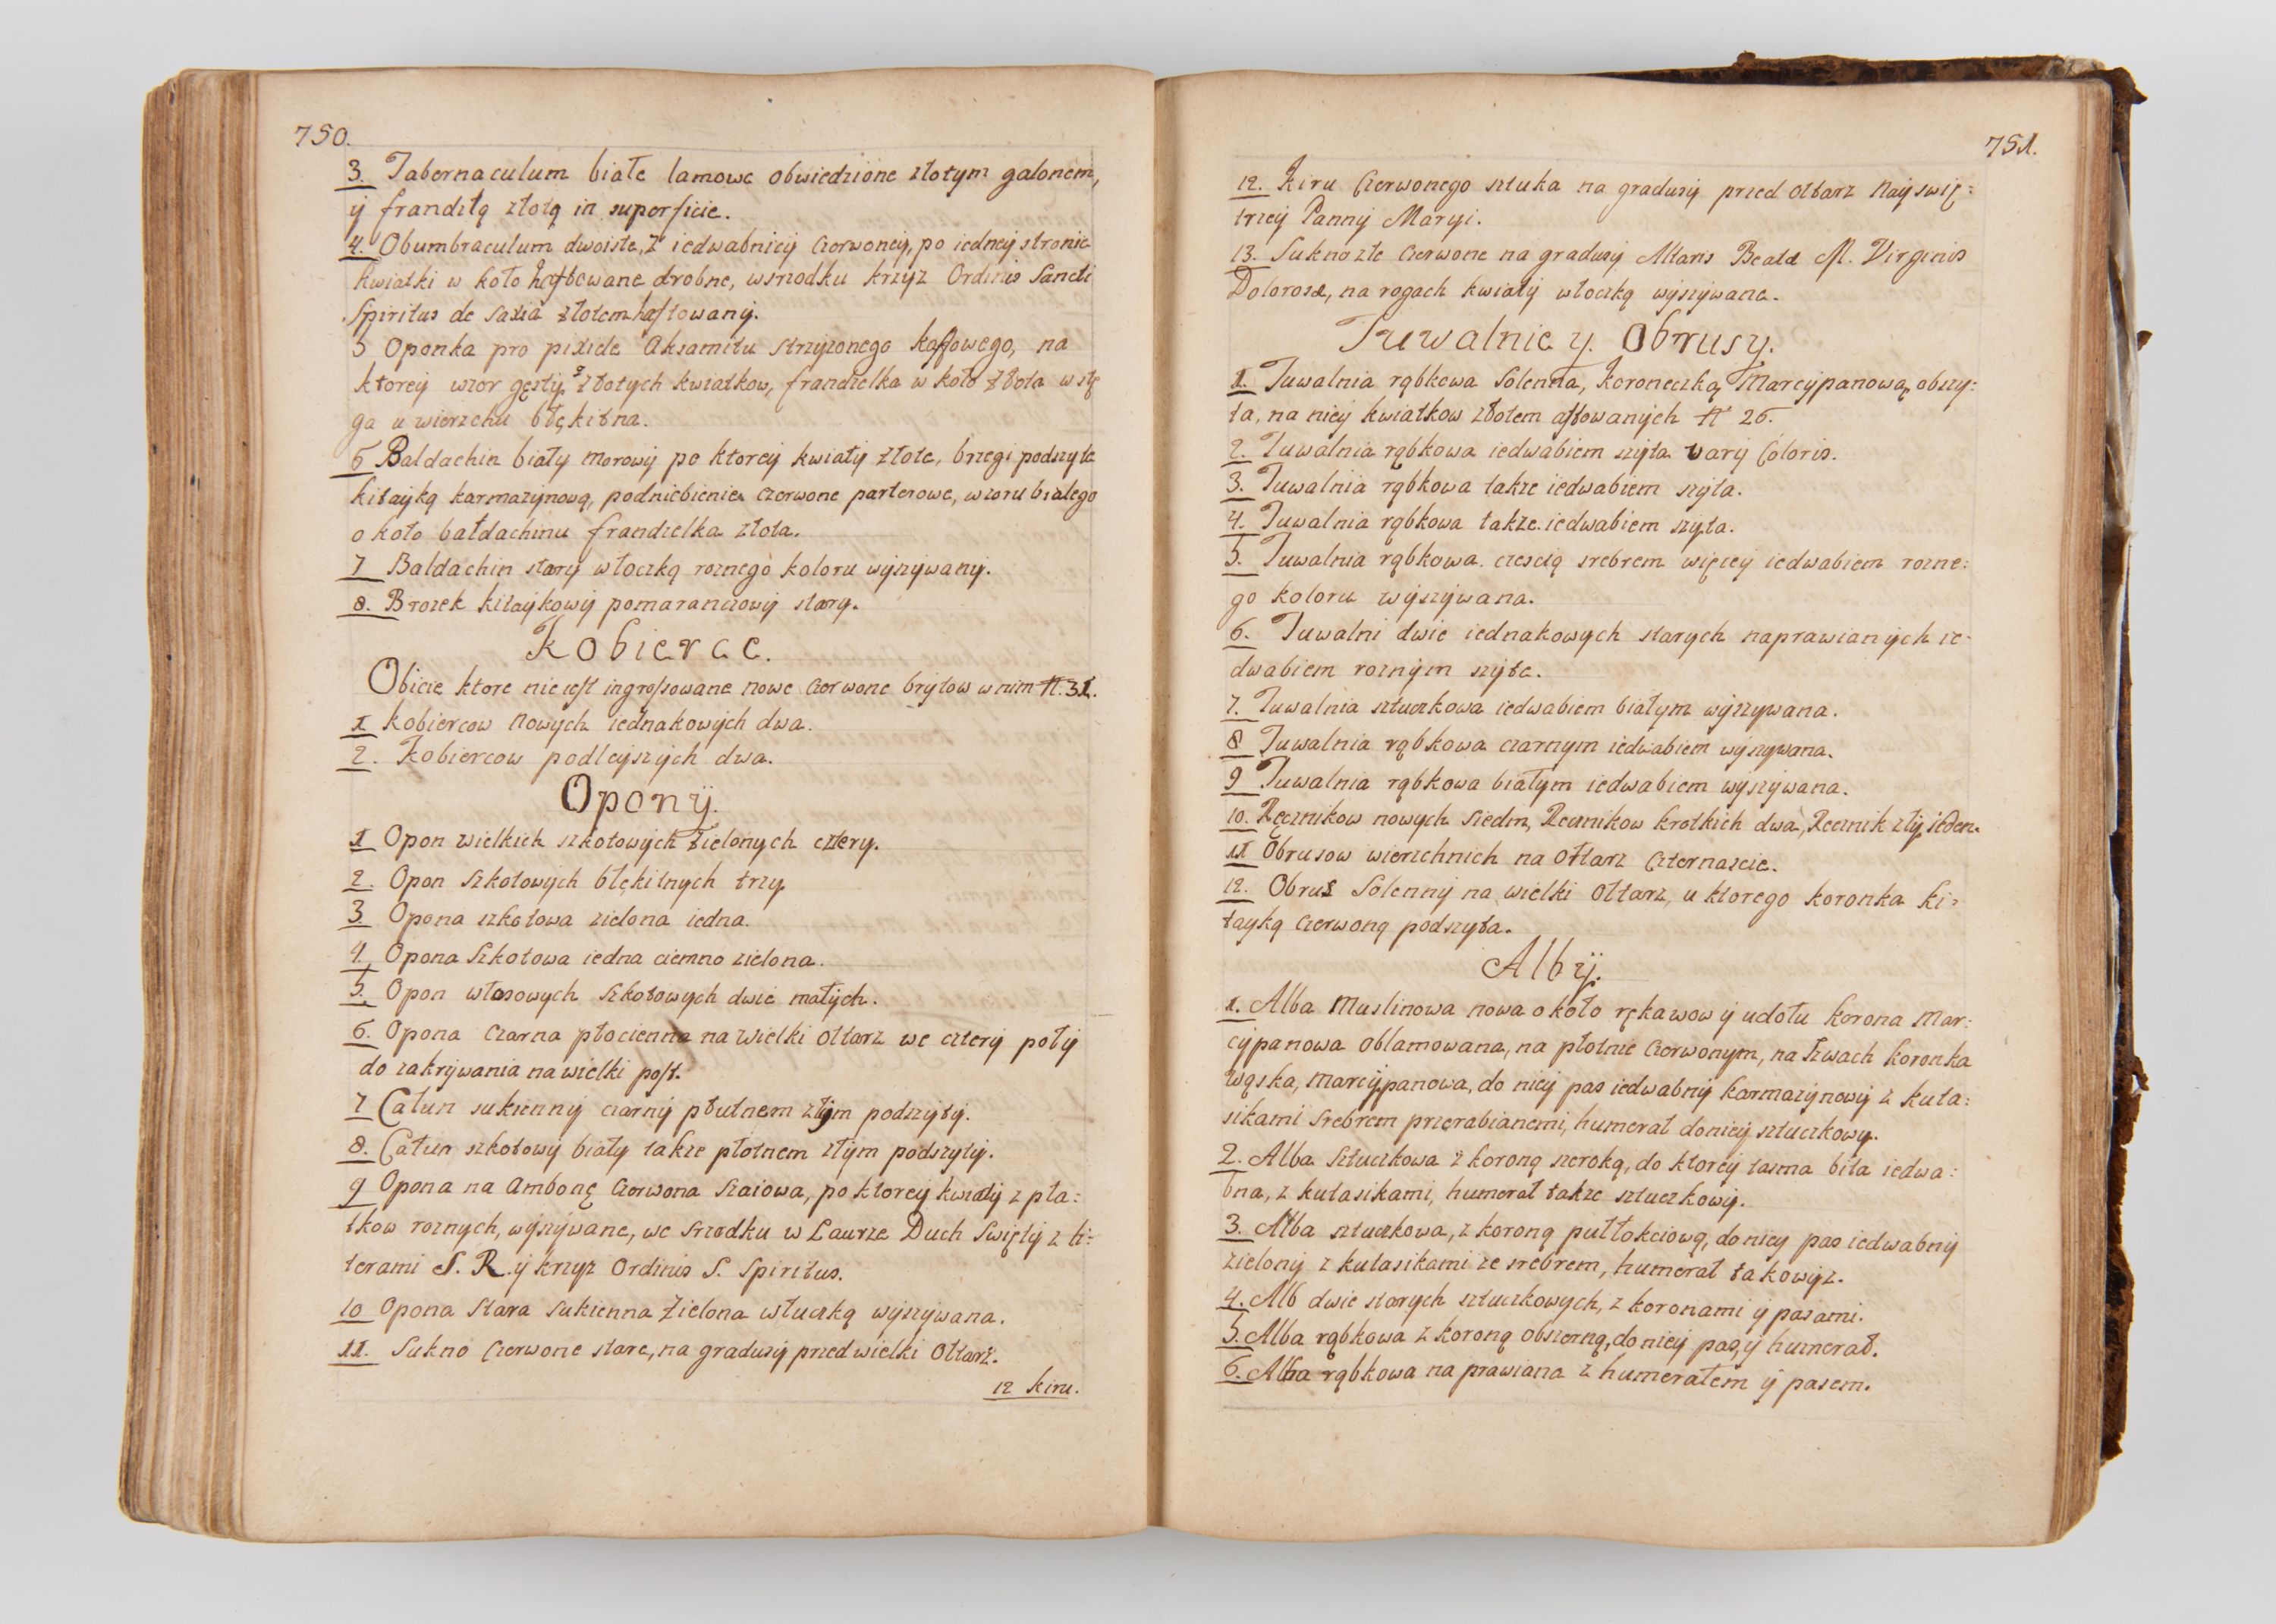 750.
3. Tabernaculum białe lamowe obwiedzione złotym galonem,
ÿ frandzłą złotą in superficie.
4. Obumbraculum dwoiste, z iedwabnicÿ czerwoneÿ, po iedneÿ stronie
kwiatki w koło haftowane drobne, wsrzodku krzÿz Ordinis Sancti
Spiritus de Saxia złotem haftowanÿ.
5 Oponka pro pixide Aksamitu strzÿzonego kaffowego, na
ktoreÿ wzor gęstÿ z złotych kwiatkow, frandzelka w koło złota wstę
ga u wierzchu błękitna.
6 Baldachin białÿ morowÿ po ktoreÿ kwiatÿ złote, brzegi podszÿte
kitaÿką karmazÿnową, podniebienie czerwone parterowe, wzoru białego
o koło bałdachinu frandzelka złota.
7 Baldachin starÿ włoczką roznego koloru wÿszÿwanÿ.
8. Brozek kitaÿkowÿ pomaranczowÿ stary.
Kobierce.
Obicie ktore nie iest ingrossowane nowe czerwone brytow w nim N. 31.
1 Kobiercow nowÿch iednakowÿch dwa.
2. Kobiercow podleÿszÿch dwa.
Oponÿ.
1 Opon wielkich szkotowÿch zielonych cztery.
2. Opon szkotowÿch błękitnych trzy
3. Opona szkotowa zielona iedna.
4. Opona Szkotowa iedna ciemno zielona.
5. Opon włosowych Szkotowych dwie małÿch.
6. Opona czarna płocienna na Wielki Ołtarz we czterÿ połÿ
do zakrÿwania na wielki post.
7 Całun sukiennÿ czarnÿ płutnem złÿm podszÿtÿ.
8. Całun szkotowÿ białÿ takze płotnem złÿm podszytÿ.
9 Opona na Ambonę Czerwona Szaiowa, po ktoreÿ kwiatÿ z pła=
tkow roznych, wÿszÿwane, we Srzodku w Laurze Duch Swiętÿ z li=
terami S. R. ÿ krzyz Ordinis S. Spiritus.
10 Opona Stara Sukienna Zielona włuczką wÿszÿwana.
11. Sukno Czerwone stare, na gradusÿ przed wielki Ołtarz.
12 Kiru.
751.
12. Kiru Czerwonego sztuka na gradusÿ przed Ołtarz Naÿswię=
trzeÿ Pannÿ Marÿi.
13. Sukno zte Czerwone na gradusÿ Altaris Beatæ M. Virginis
Dolorosæ, na rogach kwiatÿ włoczką wÿszÿwane.
Tuwalnie y Obrusy.
1. Tuwalnia rąbkowa Solenna, Koroneczką Marcÿpanową obszÿ=
ta, na nieÿ kwiatkow złotem aftowanÿch N 26.
2. Tuwalnia rąbkowa iedwabiem szÿta varÿ Coloris.
3. Tuwalnia rąbkowa takze iedwabiem szÿta.
4. Tuwalnia rąbkowa takze iedwabiem szÿta.
5. Tuwalnia rąbkowa. czescią srebrem więceÿ iedwabiem rozne=
go koloru wÿszÿwana.
6. Tuwalni dwie iednakowych starych naprawianÿch ie-
dwabiem roznÿm szÿte.
7. Tuwalnia sztuczkowa iedwabiem białÿm wÿszÿwana.
8 Tuwalnia rąbkowa czarnÿm iedwabiem wÿszÿwana.
9 Tuwalnia rąbkowa białym iedwabiem wÿszÿwana.
10. Ręcznikow nowych Siedm, Recznikow krotkich dwa, Recznik złÿ ieden.
11 Obrusow wierzchnich na Ołtarz Czternascie.
12. Obrus Solennÿ na wielki Ołtarz, u ktorego koronka ki=
taÿką Czerwoną podszÿta.
Albÿ.
1. Alba Muslinowa nowa o koło rękawow ÿ udołu korona Mar=
cÿpanowa oblamowana, na płotnie Czerwonÿm, na Szwach koronka
wąska, Marcÿpanowa, do nieÿ pas iedwabnÿ karmazÿnowÿ z kuta=
sikami Srebrem przerabianemi, humerał do nieÿ sztuczkowy.
2. Alba Sztuczkowa z koroną szeroką, do ktoreÿ tasma bita iedwa=
bna, z kutasikami, humerał takze sztuczkowÿ.
3. Alba sztuczkowa, z koroną pułłokciową, do nieÿ pas iedwabnÿ
zielonÿ z kutasikami ze srebrem, humerał takowÿz.
4. Alb dwie starych sztuczkowych, z koronami ÿ pasami.
5. Alba rąbkowa z koroną obszerną, do nieÿ pas, ÿ humerał.
6. Alba rąbkowa na prawiana z humerałem ÿ pasem.